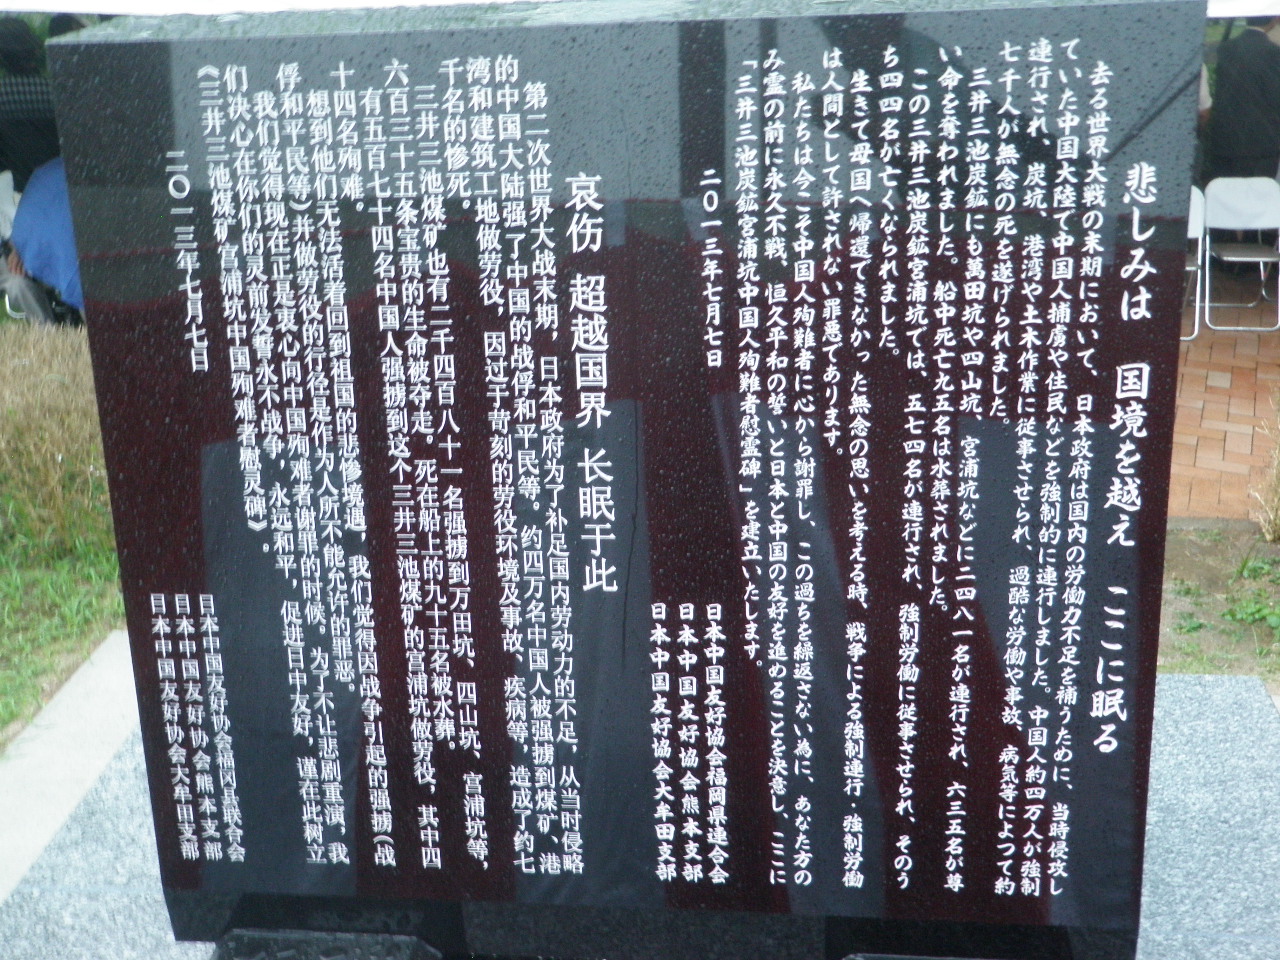 悲しみは 国境を越え ここに眠る
去る世界大戦の末期において、日本政府は国内の労働力不足を補うために、当時侵攻し
ていた中国大陸で中国人捕虜や住民などを強制的に連行しました。中国人約四万人が強制
連行され、炭坑、港湾や土木作業に従事させられ、過酷な労働や事故、病気等によって約
七千人が無念の死を遂げられました。
三井三池炭鉱にも萬田坑や四山坑、宮浦坑などに二四八一名が連行され、六三五名が尊
い命を奪われました。船中死亡九五名は水葬されました。
この三井三池炭鉱宮浦坑では、五七四名が連行され、強制労働に従事させられ、そのう
ち四四名が亡くなられました。
生きて母国へ帰還できなかった無念の思いを考える時、戦争による強制連行・強制労働
は人間として許されない罪悪であります。
私たちは今こそ中国人殉難者に心から謝罪し、この過ちを繰返さない為に、あなた方の
み霊の前に永久不戦、恒久平和の誓いと日本と中国の友好を進めることを決意し、ここに
「三井三池炭鉱宮浦坑中国人殉難者慰霊碑」を建立いたします。
二〇一三年七月七日
日本中国友好協会福岡県連合会
日本中国友好協会熊本支部
日本中国友好協会大牟田支部
哀伤 超越国界 长眠于此
第二次世界大战末期，日本政府为了补足国内劳动力的不足，从当时侵略
的中国大陆强了中国的战俘和平民等。约四万名中国人被强掳到煤矿、港
湾和建筑工地做劳役，因过于苛刻的劳役环境及事故、疾病等，造成了约七
千名的惨死。
三井三池煤矿也有二千四百八十一名强掳到万田坑、四山坑、宫浦坑等，
六百三十五条宝贵的生命被夺走。死在船上的九十五名被水葬。
有五百七十四名中国人强掳到这个三井三池煤矿的宫浦坑做劳役，其中四
十四名殉难。
想到他们无法活着回到祖国的悲惨境遇，我们觉得因战争引起的强掳（战
俘和平民等）并做劳役的行径是作为人所不能允许的罪恶。
我们觉得现在正是衷心向中国殉难者谢罪的时候。为了不让悲剧重演，我
们决心在你们的灵前发誓永不战争，永远和平，促进日中友好，谨在此树立
《三井三池煤矿宫浦坑中国殉难者慰灵碑》。
二〇一三年七月七日
日本中国友好协会福冈县联合会
日本中国友好协会熊本支部
日本中国友好协会大牟田支部